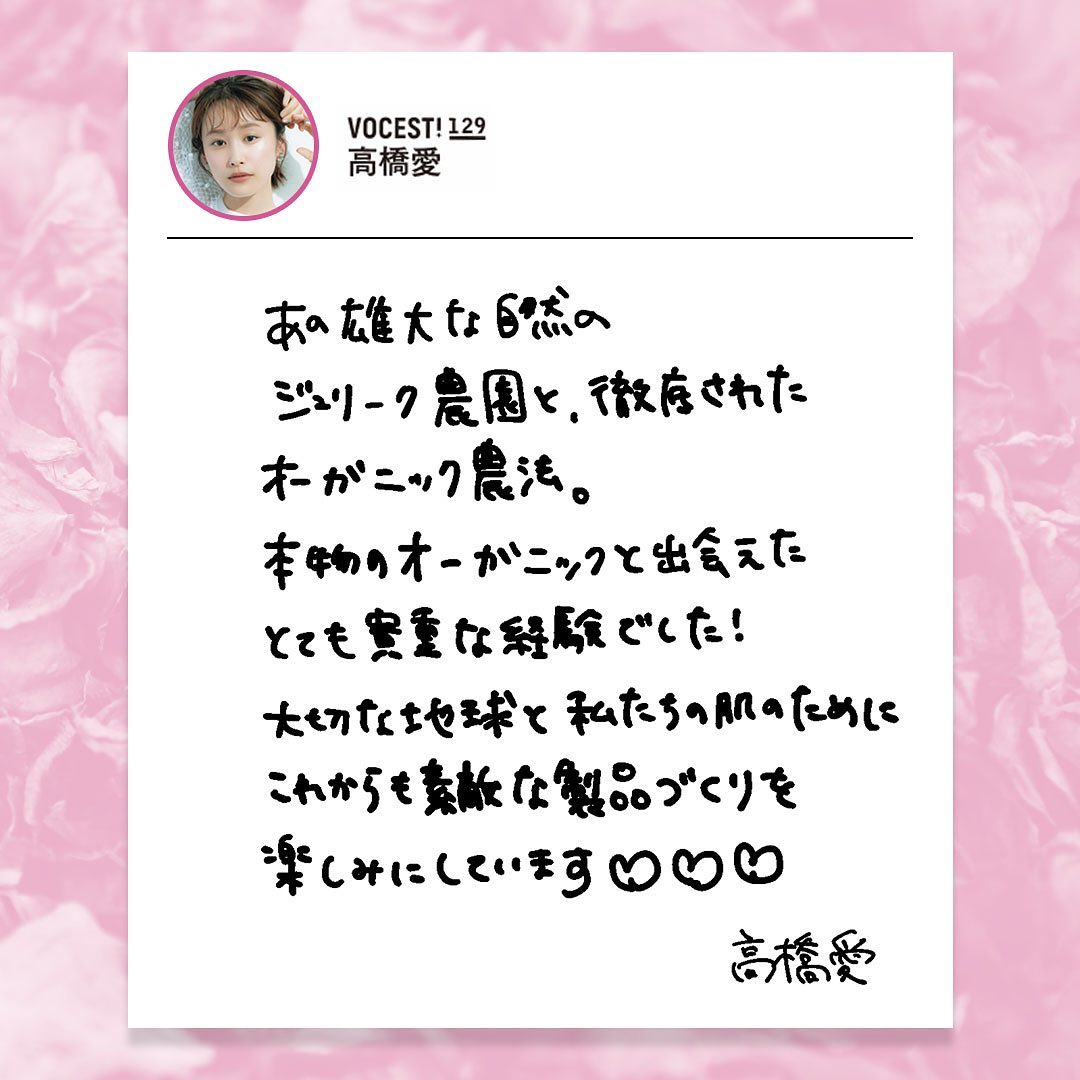 VOCEST! 129
高橋愛
あの雄大な自然の
ジュリーク農園と、徹底された
オーガニック農法。
本物のオーガニックと出会えた
とても貴重な経験でした!
大切な地球と私たちの肌のために
これからも素敵な製品づくりを
楽しみにしています♡♡♡
高橋愛